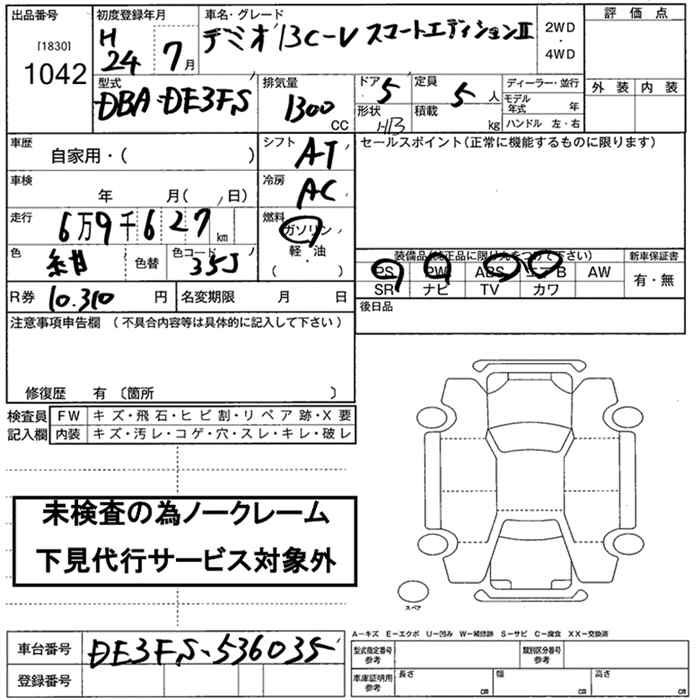 出品番号 初度登録年月 車名・グレード 評価点
[1830] H 24 7月 デミオ 13C-V スコートエディションⅡ 2WD・4WD
1042
型式 排気量 ドア 5 定員 5人 ディーラー・並行 外装 内装
DBA-DE3FS 1300 CC 形状 H/B 積載 kg モデル年式 年
ハンドル 左・右
車歴 自家用・( ) シフト AT セールスポイント(正常に機能するものに限ります)
車検 年 月( 、日) 冷房 AC
走行 6万9千627km 燃料 ガソリン
軽・油
( )
色 紺 色替 色コード 35J 装備品(純正品に限り○をつけて下さい) 新車保証書
PS PW ABS エアB AW 有・無
SR ナビ TV カワ
R券 10.310 円 名変期限 月 日 後日品
注意事項申告欄 (不具合内容等は具体的に記入して下さい)
修復歴 有 〔箇所 〕
検査員 FW キズ・飛石・ヒビ割・リペア跡・X要
記入欄 内装 キズ・汚レ・コゲ・穴・スレ・キレ・破レ
未検査の為ノークレーム
下見代行サービス対象外
スペア
A－キズ E－エクボ U－凹み W－補修跡 S－サビ C－腐食 XX－交換済
車台番号 DE3FS-536035 型式指定番号 参考 類別区分番号 参考
登録番号 車庫証明用 参考 長さ cm 幅 cm 高さ cm